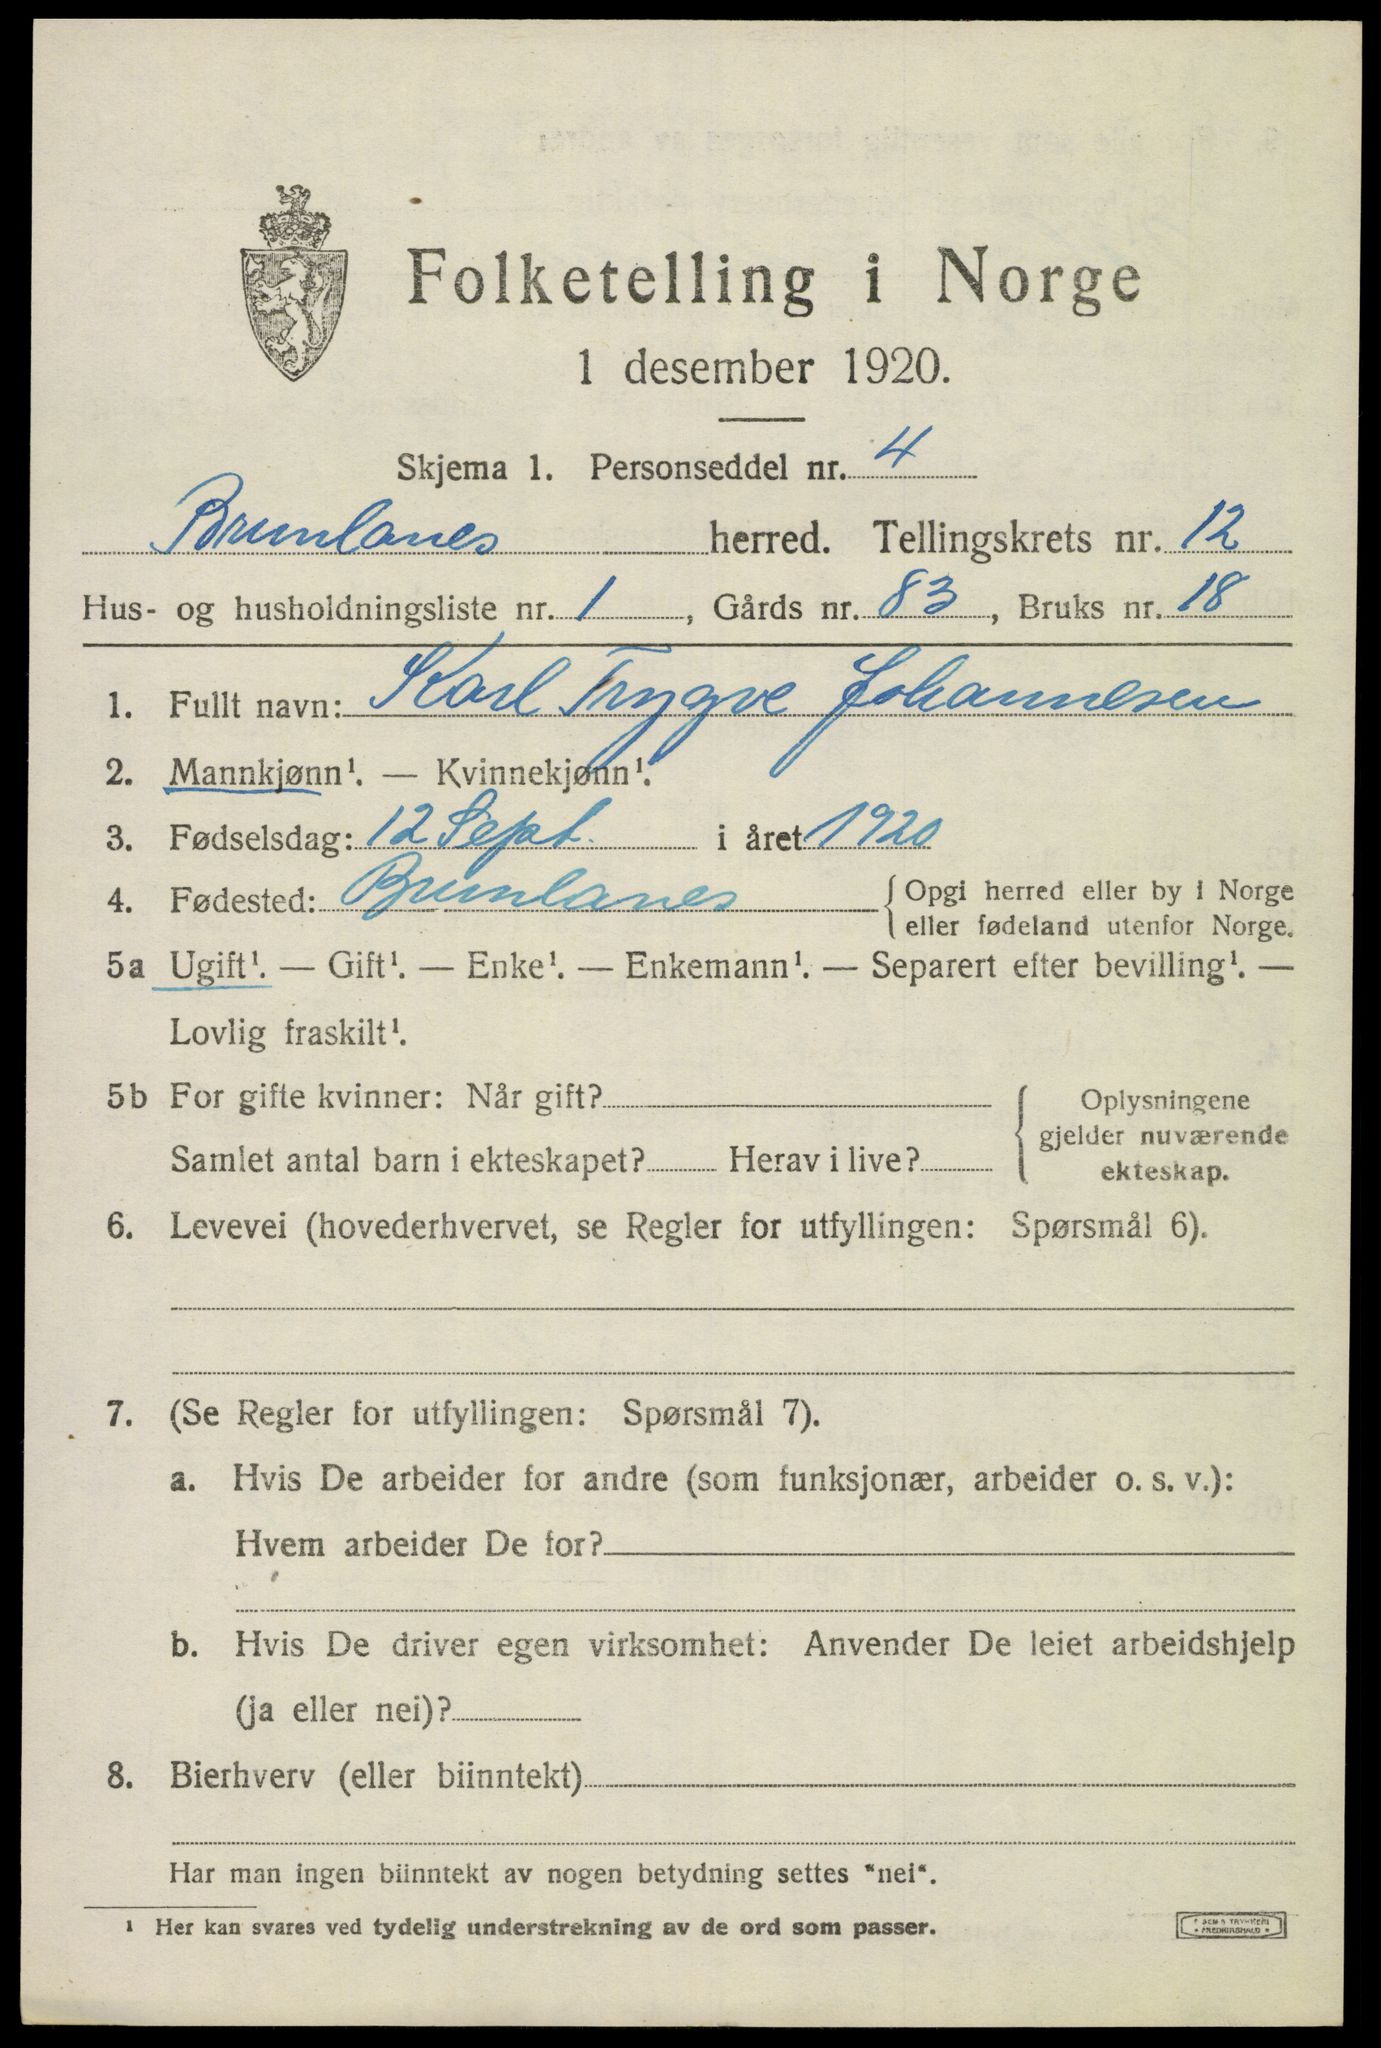 Folketelling i Norge
1 desember 1920.
Skjema 1. Personseddel nr. 4
Brunlanes herred. Tellingskrets nr. 12
Hus- og husholdningsliste nr. 1, Gårds nr. 83, Bruks nr. 18
1. Fullt navn: Karl Trygve Johannesen
2. Mannkjønn¹. — Kvinnekjønn¹.
3. Fødselsdag: 12 Sept. i året 1920
4. Fødested: Brunlanes { Opgi herred eller by i Norge
eller fødeland utenfor Norge.
5a Ugift¹. — Gift¹. — Enke¹. — Enkemann¹. — Separert efter bevilling¹. —
Lovlig fraskilt¹.
5b For gifte kvinner: Når gift? { Oplysningene
gjelder nuværende
Samlet antal barn i ekteskapet? Herav i live?
ekteskap.
6. Levevei (hovederhvervet, se Regler for utfyllingen: Spørsmål 6).
7. (Se Regler for utfyllingen: Spørsmål 7).
a. Hvis De arbeider for andre (som funksjonær, arbeider o. s. v.):
Hvem arbeider De for?
b. Hvis De driver egen virksomhet: Anvender De leiet arbeidshjelp
(ja eller nei)?
8. Bierhverv (eller biinntekt)
Har man ingen biinntekt av nogen betydning settes "nei".
¹ Her kan svares ved tydelig understrekning av de ord som passer.